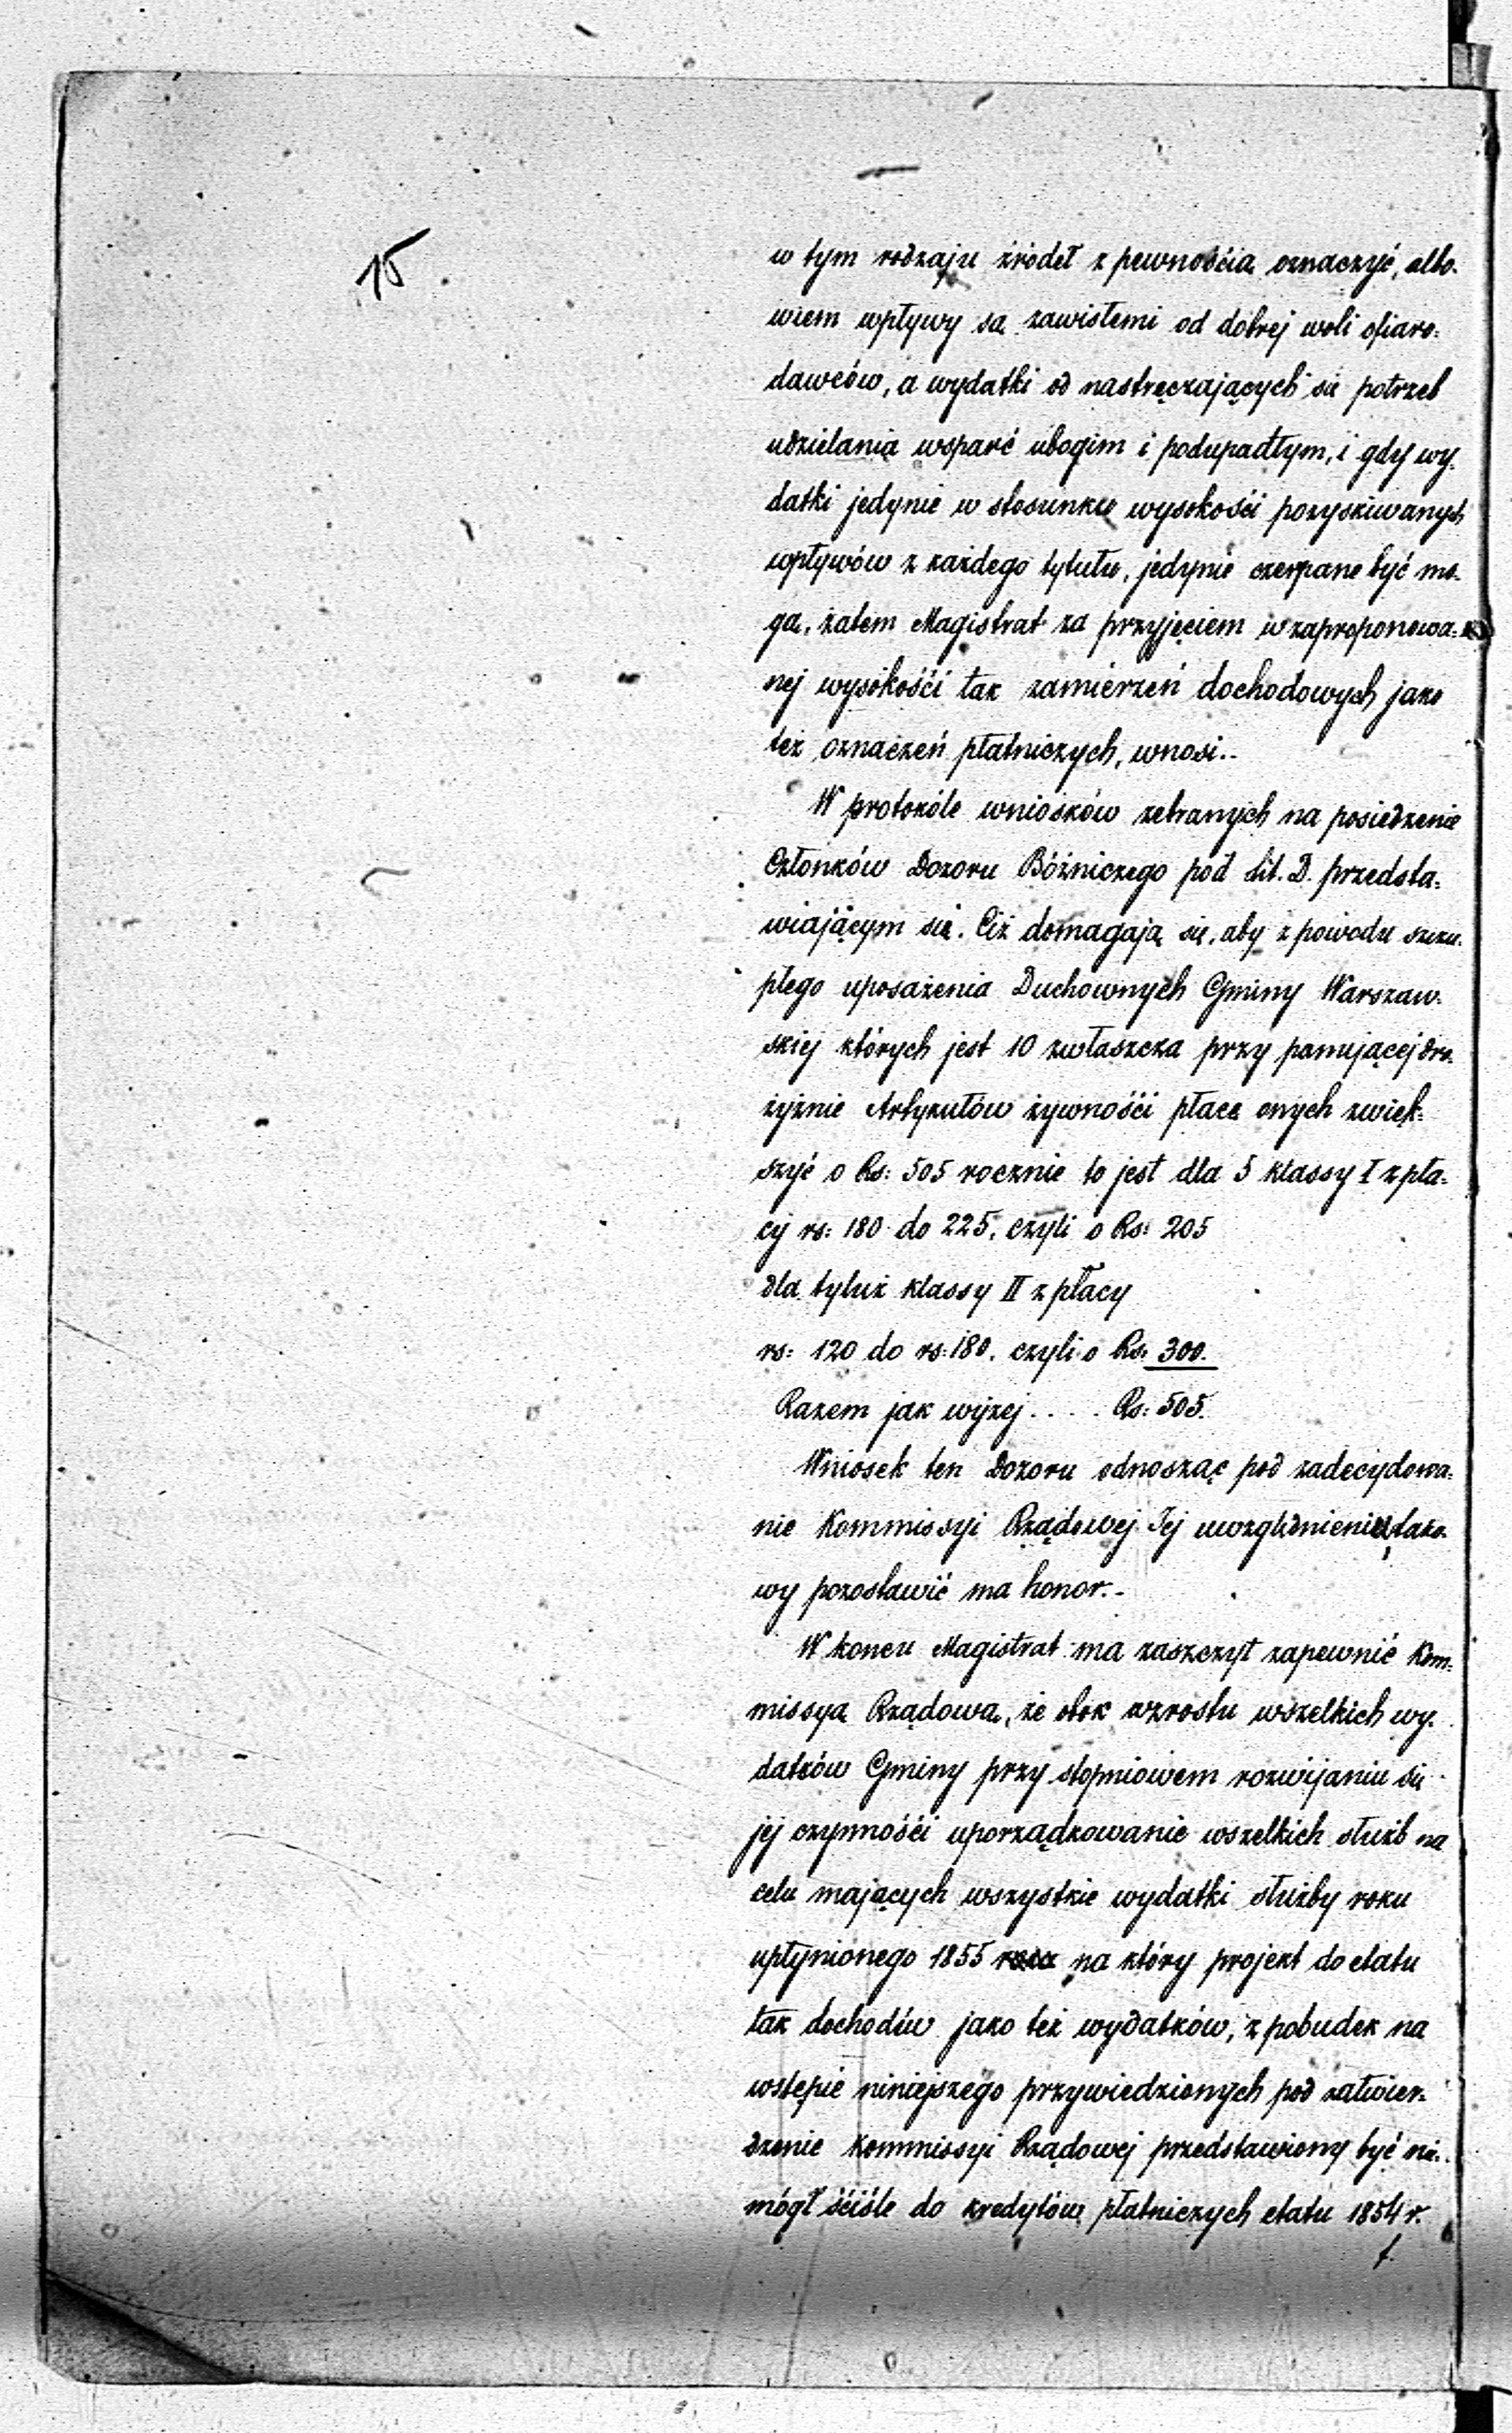 15
w tym rodzaju źródeł z pewnością oznaczyć, albo-
wiem wpływy są zawisłemi od dobrej woli ofiaro-
dawców, a wydatki od nastręczających się potrzeb
udzielania wsparć ubogim i podupadłym, i gdy wy-
datki jedynie w stosunku wysokości pozyskiwanych
wpływów z każdego tytułu, jedynie czerpane być mo-
gą, zatem Magistrat za przyjęciem w zaproponowa-
nej wysokości tak zamierzeń dochodowych jako
też oznaczeń płatniczych, wnosi.-
W protokóle wniosków zebranych na posiedzenie
Członków Dozoru Bóżniczego pod Lit. D. przedsta-
wiającym się. Ciż domagają się, aby z powodu szczu-
płego uposażenia Duchownych Gminy Warszaw-
skiej których jest 10 zwłaszcza przy panującej dro-
żyźnie Artykułów żywności płace onych zwięk-
szyć o Rs: 505 rocznie to jest dla 5 klassy I z pła-
cy rs: 180 do 225, czyli o Rs: 205
dla tyluż klassy II z płacy
rs: 120 do rs: 180. czyli o Rs: 300.
Razem jak wyżej . . . . Rs: 505.
Wniosek ten Dozoru odnosząc pod zadecydowa-
nie Kommissyi Rządowej Jej uwzględnieniu, tako-
wy pozostawić ma honor.-
W końcu Magistrat ma zaszczyt zapewnić Kom-
missyą Rządową, że obok wzrostu wszelkich wy-
datków Gminy przy stopniowem rozwijaniu się
jej czynności uporządkowanie wszelkich służb na
celu mających wszystkie wydatki służby roku
upłynionego 1855 na który projekt do etatu
tak dochodów jako też wydatków, z pobudek na
wstępie niniejszego przywiedzionych pod zatwier-
dzenie Kommissyi Rządowej przedstawiony być nie-
mógł ściśle do kredytów płatniczych etatu 1854 r.